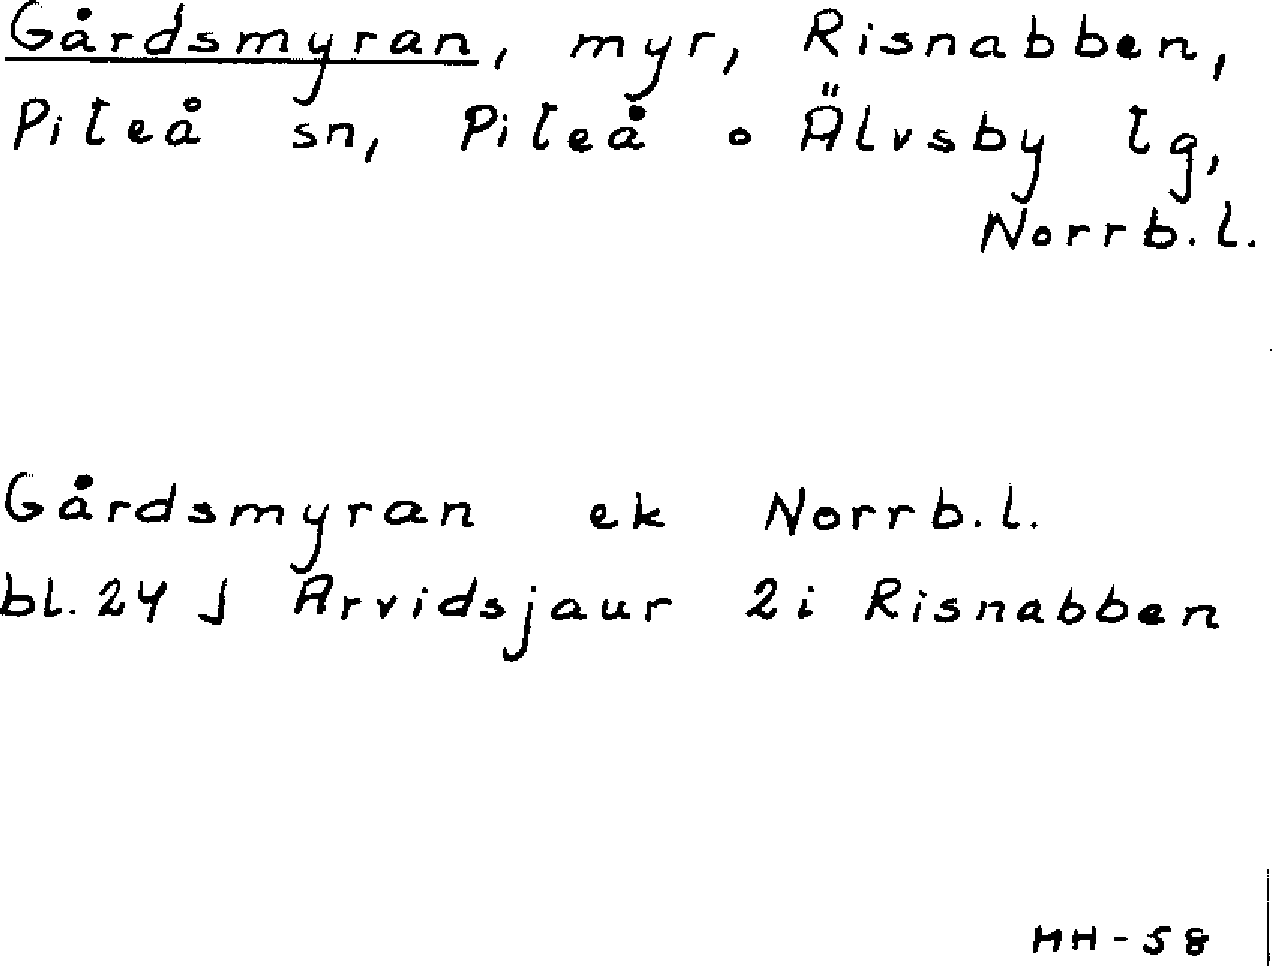 Gårdsmyran, myr, Risnabben,
Piteå sn, Piteå o Älvsby tg,
Norrb.l.
Gårdsmyran ek Norrb.l.
bl. 24 J Arvidsjaur 2i Risnabben
MH-58